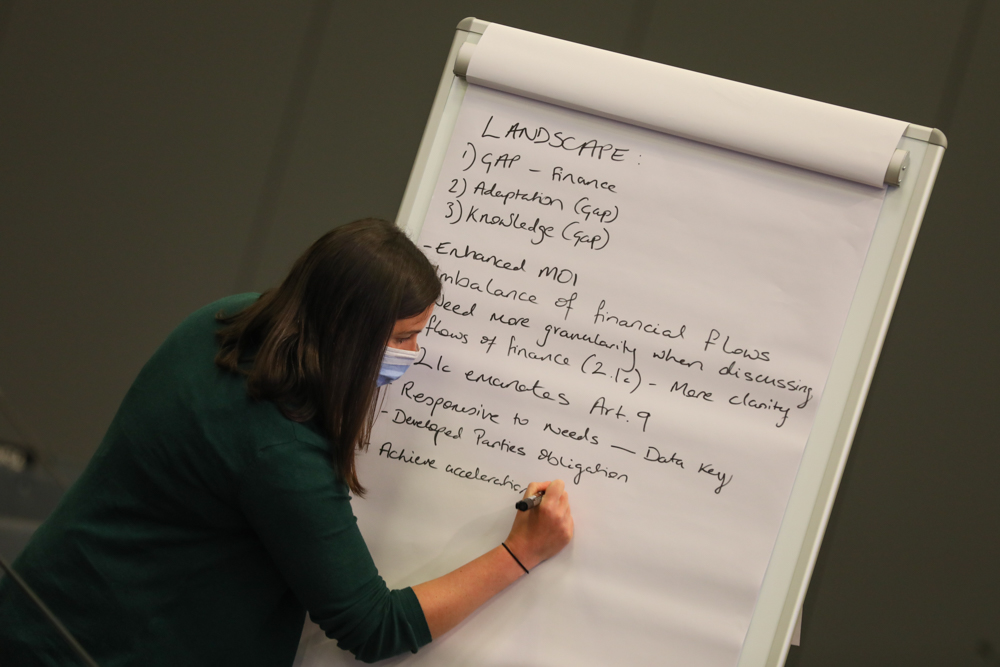 LANDSCAPE:
1) GAP - Finance
2) Adaptation (Gap)
3) Knowledge (Gap)
- Enhanced MOI
Imbalance of financial flows
Need more granularity when discussing
flows of finance (2.1c) - More clarity
2.1c emanates Art. 9
Responsive to needs — Data key
- Developed Parties obligation
- Achieve acceleration